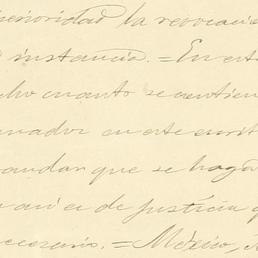 perioridad la revocacie
instancia. = En este
cho cuanto se contien
anador en este escrit
andar que se haga
de justicia q
necesario. = México, J